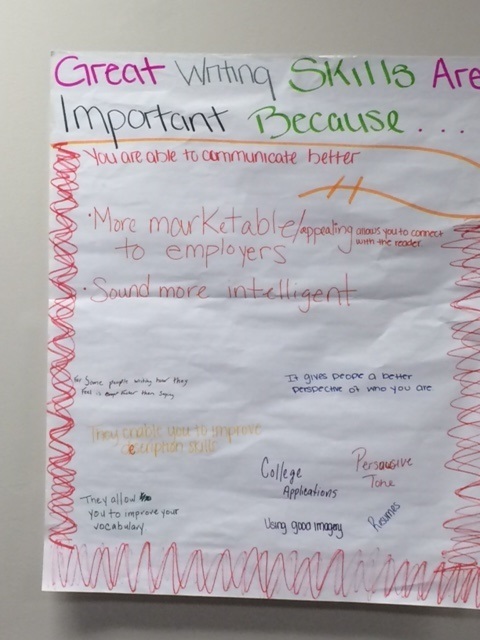 Great Writing Skills Are
Important Because...
You are able to communicate better
·More marketable/appealing allows you to connect
with the reader
to employers
·Sound more intelligent
For some people writing how they
feel is easier than saying
It gives people a better
perspective of who you are
They enable you to improve
description skills
College
Applications
Persausive
Tone
They allow
you to improve your
vocabulary
Using good imagery
Resumes